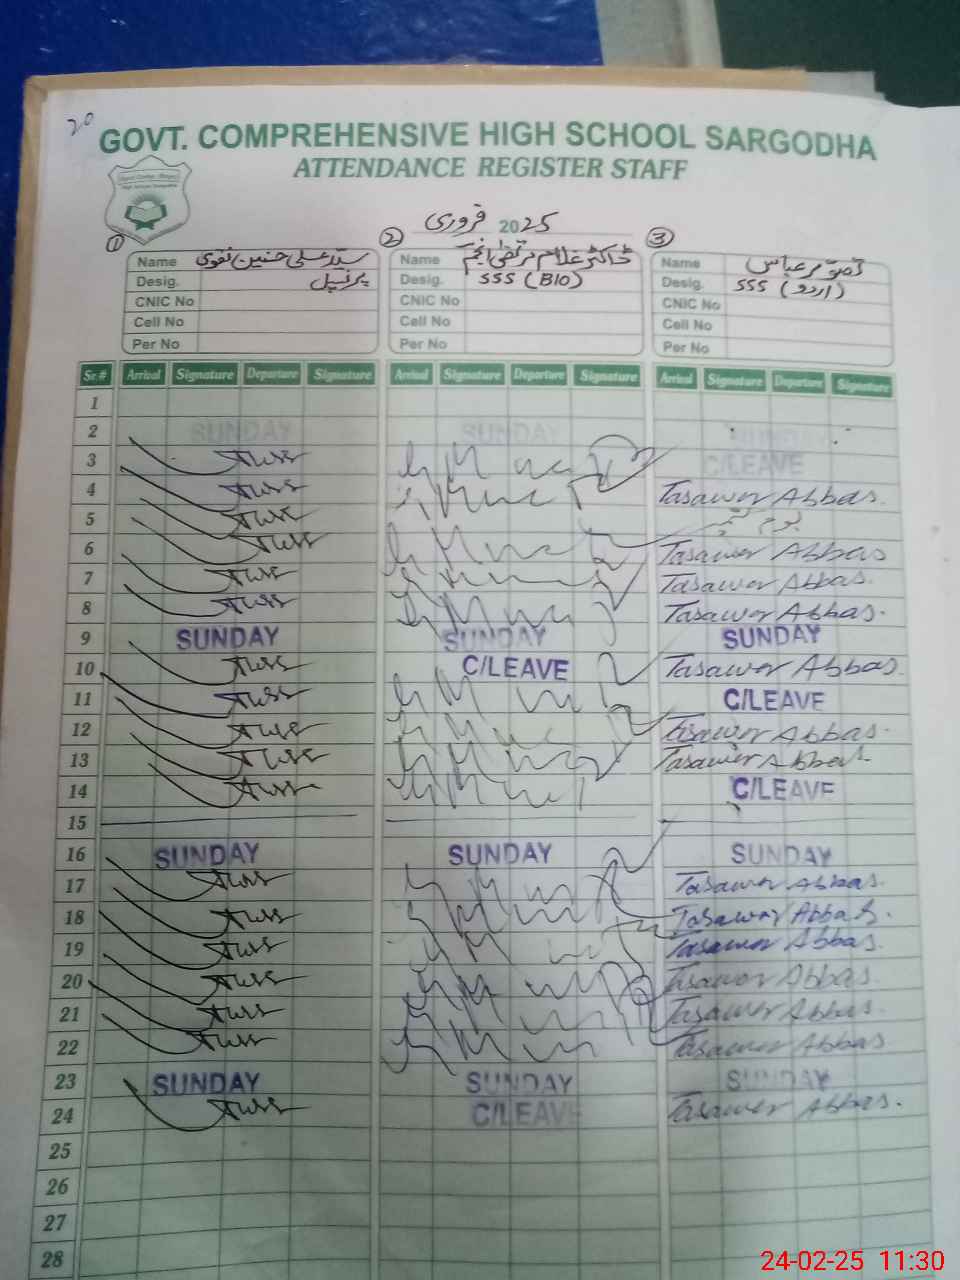 20
GOVT. COMPREHENSIVE HIGH SCHOOL SARGODHA
ATTENDANCE REGISTER STAFF
فروری 2025
① ② ③
Name سید علی حسنین نقوی Name ڈاکٹر غلام مرتضیٰ انجم Name تصور عباس
Desig. پرنسپل Desig. SSS (BIO) Desig. SSS (اردو)
CNIC No CNIC No CNIC No
Cell No Cell No Cell No
Per No Per No Per No
Sr.# Arrival Signature Departure Signature Arrival Signature Departure Signature Arrival Signature Departure Signature
1
2 SUNDAY SUNDAY SUNDAY
3 C/LEAVE
4 Tasawer Abbas.
5
6 Tasawer Abbas
7 Tasawer Abbas.
8 Tasawer Abbas.
9 SUNDAY SUNDAY SUNDAY
10 C/LEAVE Tasawer Abbas.
11 C/LEAVE
12 Tasawer Abbas.
13 Tasawer Abbas.
14 C/LEAVE
15
16 SUNDAY SUNDAY SUNDAY
17 Tasawer Abbas.
18 Tasawer Abbas.
19 Tasawer Abbas.
20 Tasawer Abbas
21 Tasawer Abbas.
22 Tasawer Abbas
23 SUNDAY SUNDAY SUNDAY
24 C/LEAVE Tasawer Abbas.
25
26
27
28
24-02-25 11:30